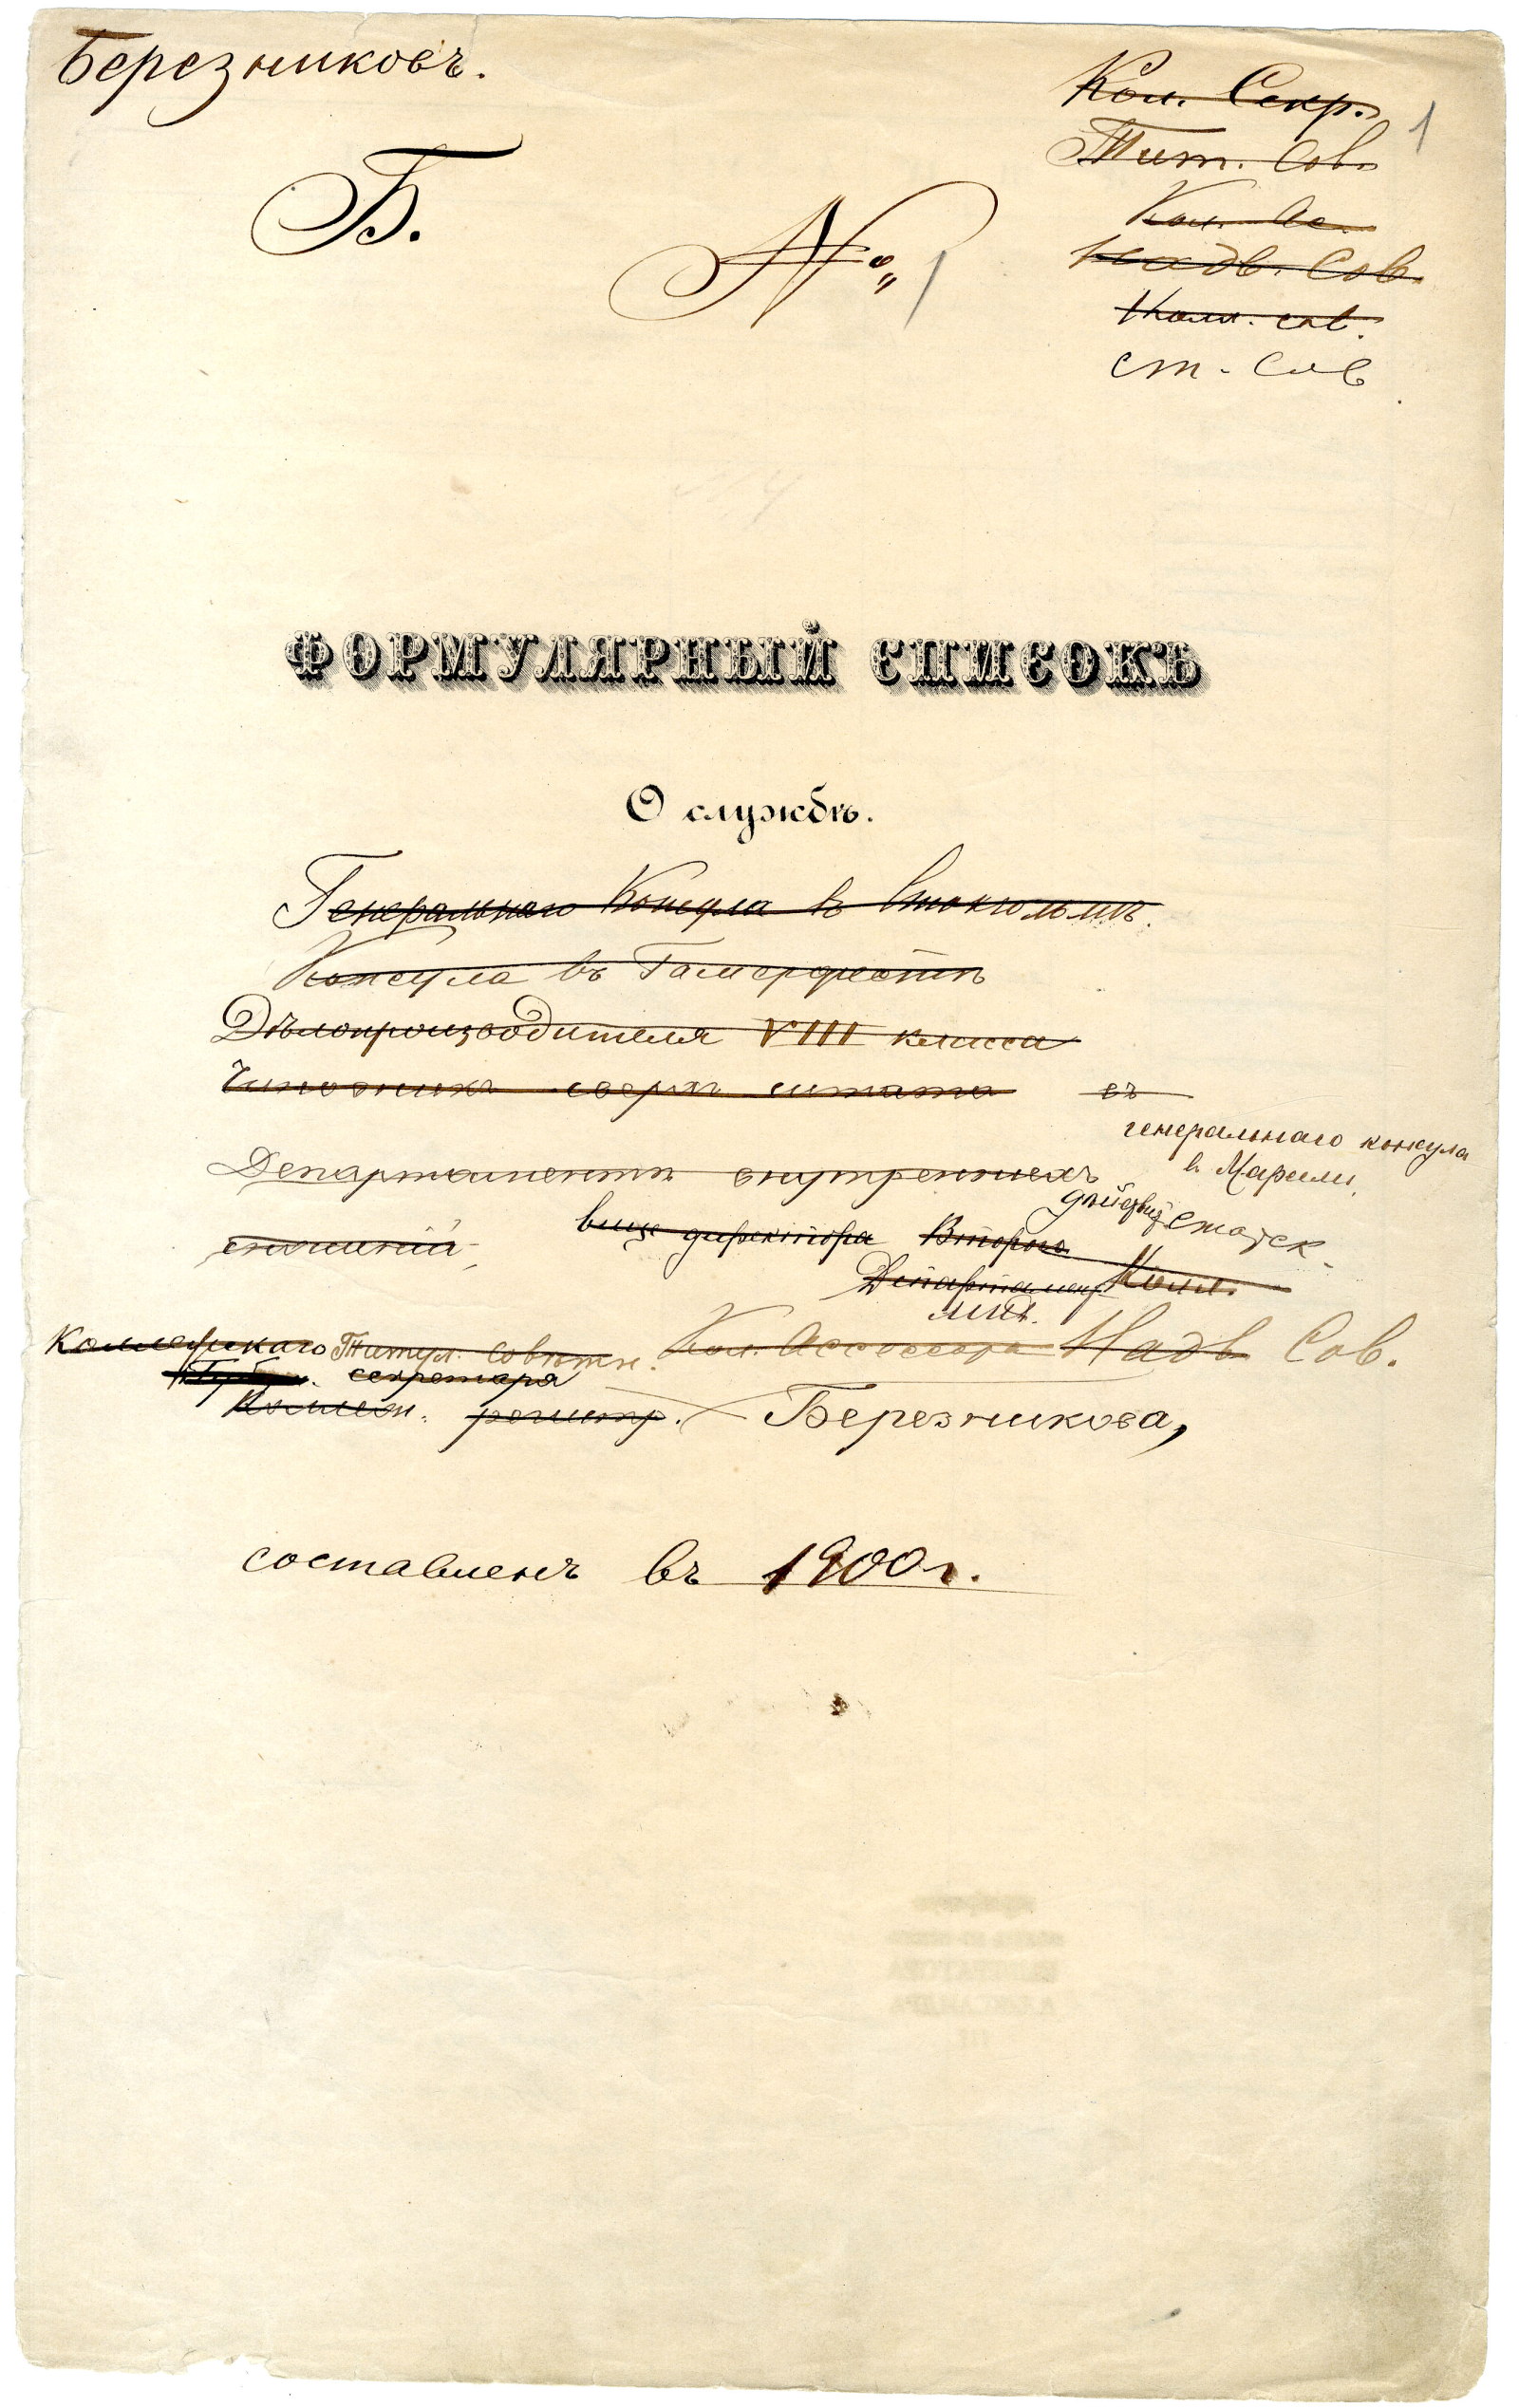 Березниковъ.
Кол. Секр.
1
Тит. Сов.
Б.
№ 1
Кол. Ас.
Надв. Сов.
Колл. сов.
ст. Сов.
ФОРМУЛЯРНЫЙ СПИСОКЪ
О службѣ.
Генеральнаго Консула въ Стокгольмѣ.
Консула въ Гамерфестѣ
Дѣлопроизводителя VIII класса
Чиновника сверхъ штата въ
генеральнаго консула
в Марсели,
Департаментѣ внутреннихъ
дѣйствит Статск.
сношеній,
вице директора Второго
Департамент Колл.
мид.
Коллежскаго Титул. Совѣтн. Кол. Ассесора Надв Сов.
Губерн. секретаря
Коллеж. регистр. Березникова,
составленъ въ 1900 г.